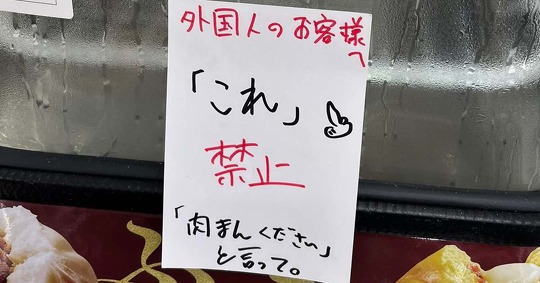 外国人のお客様へ
「これ」
禁止
「肉まんください」
と言って。